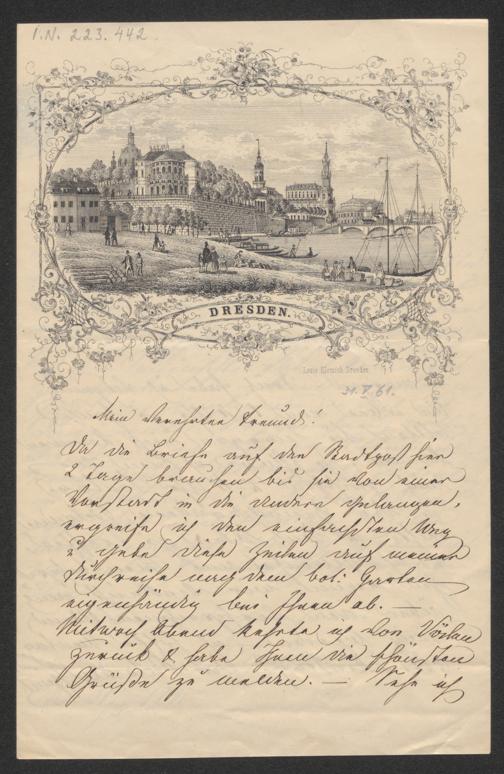 I.N. 223.442
DRESDEN.
Louis Klemich Dresden
31.V.61.
Mein verehrter Freund!
Da die Briefe auf der Stadtpost hier
2 Tage brauchen bis sie von einer
Vorstadt in die andere gelangen,
ergreife ich den einfachsten Weg
& gebe diese Zeilen auf meiner
Durchreise nach dem bot. Garten
eigenhändig bei Ihnen ab. —
Mitwoch Abend kehrte ich von Vöslau
zurück & habe Ihnen die schönsten
Grüße zu melden. — Sehe ich